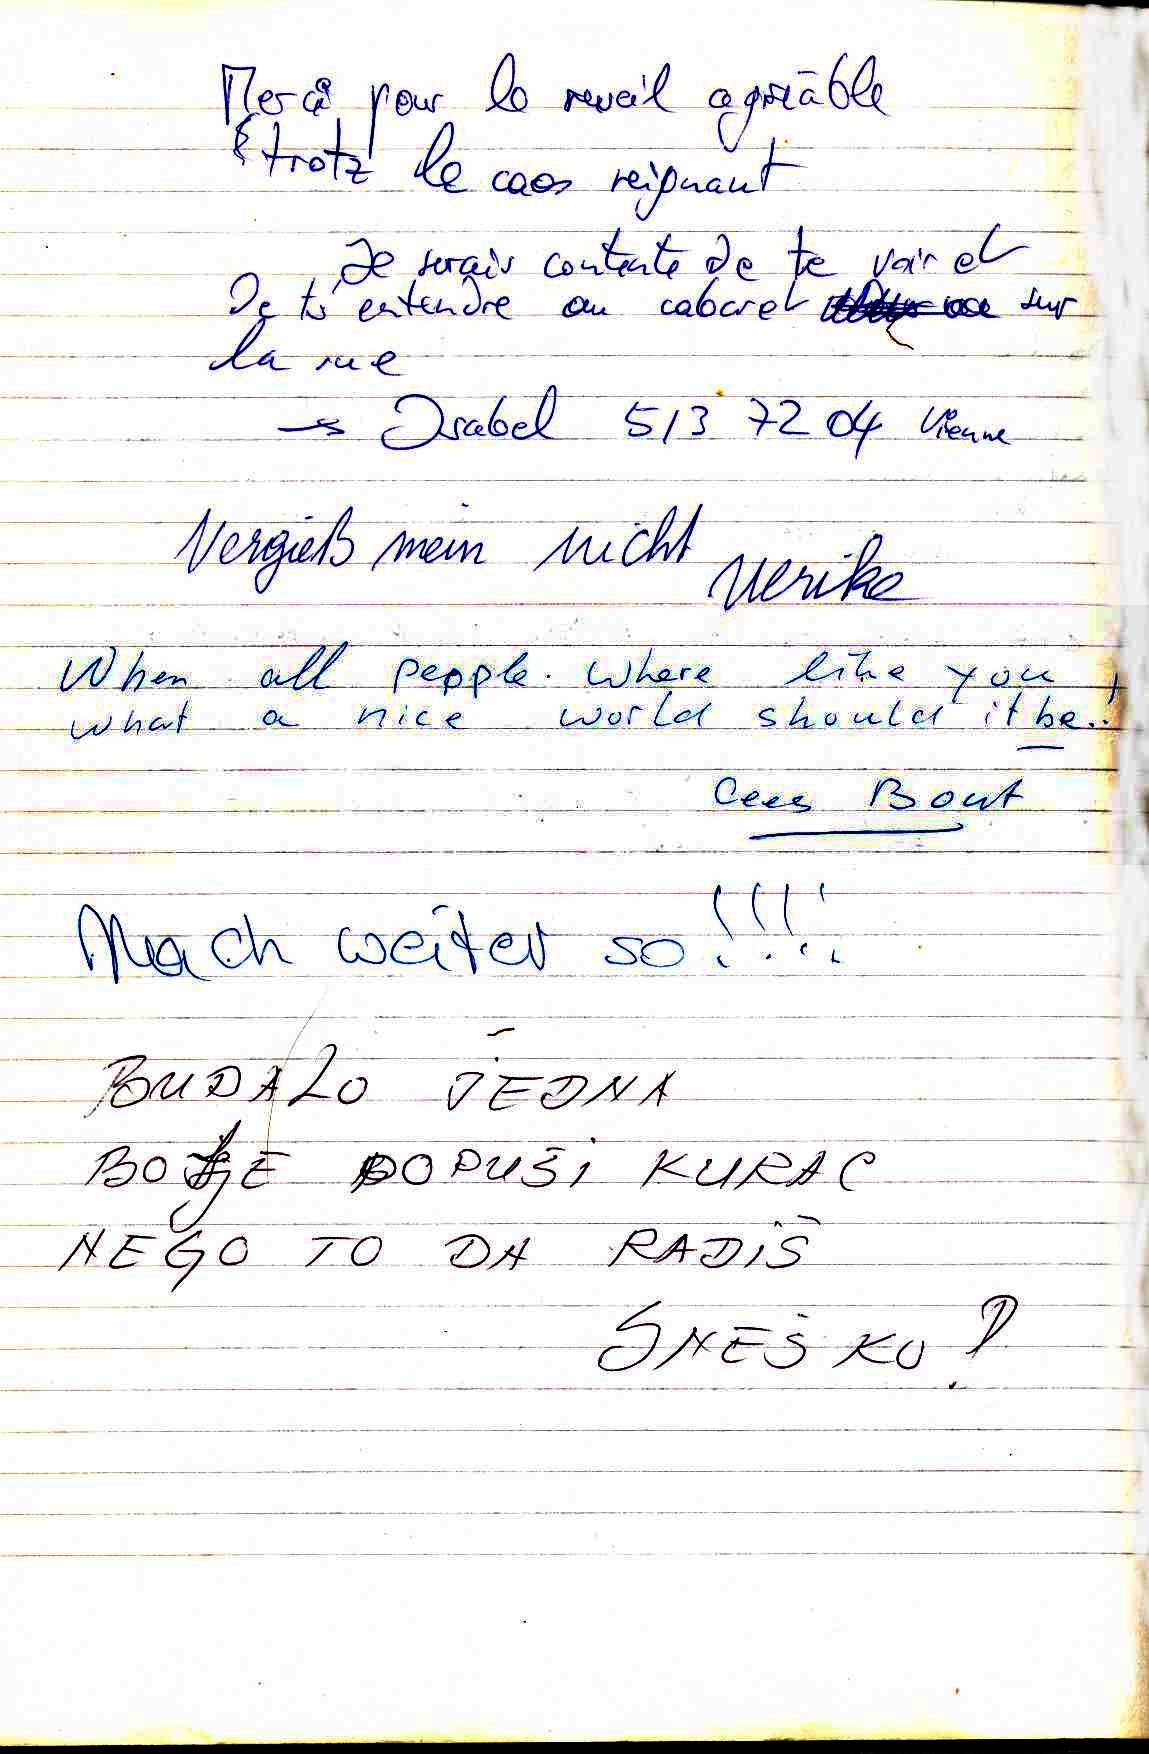 Merci pour le reveil agréable
& trotz le caos reignant
Je serais contente de te voir et
De t'entendre au cabaret sur
la rue
→ Isabel 513 72 04 Vienne
Vergieß mein nicht
Ulrike
When all people where like you,
what a nice world should it be.!
Cees Bout
Mach weiter so!!!!
BUDALO JEDNA
BOLJE POPUŠI KURAC
NEGO TO DA RADIŠ
SMEŠKO!